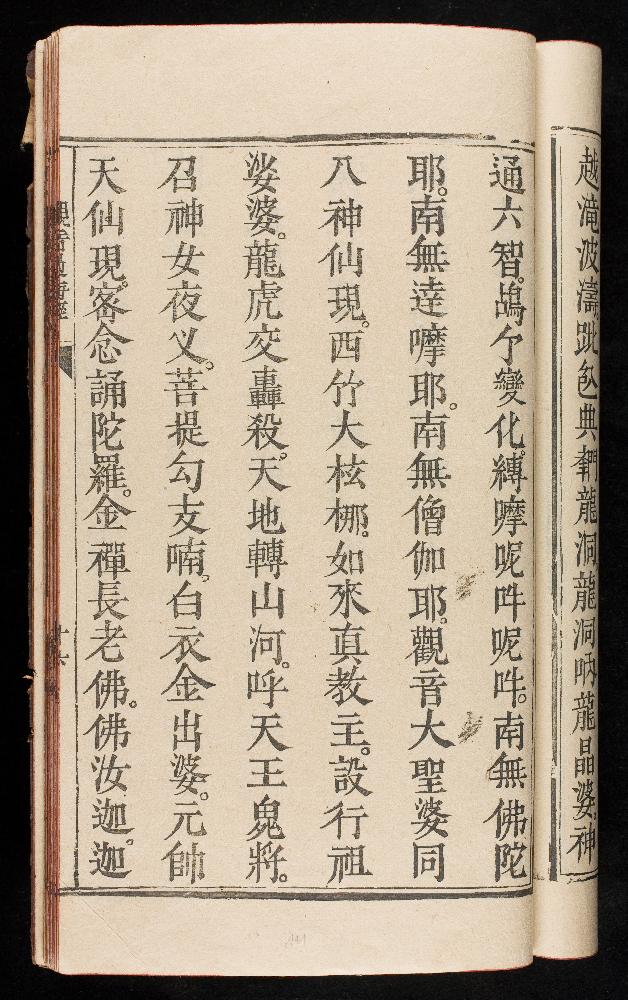 越滝波濤跐包典輧龍洞龍洞吶龍晶婆神
通六智。鴣兮變化。縛嘇呢吽呢吽。南無佛陀
耶。南無達嘇耶。南無僧伽耶。觀音大聖婆同
八神仙現。西竹大柭梛。如來真教主。設行祖
娑婆。龍虎交轟殺。天地轉山河。呼天王鬼將。
召神女夜义。菩提勾支喃。白衣金出婆。元帥
天仙現。密念誦陀羅。金禪長老佛。佛汝迦。迦
十六